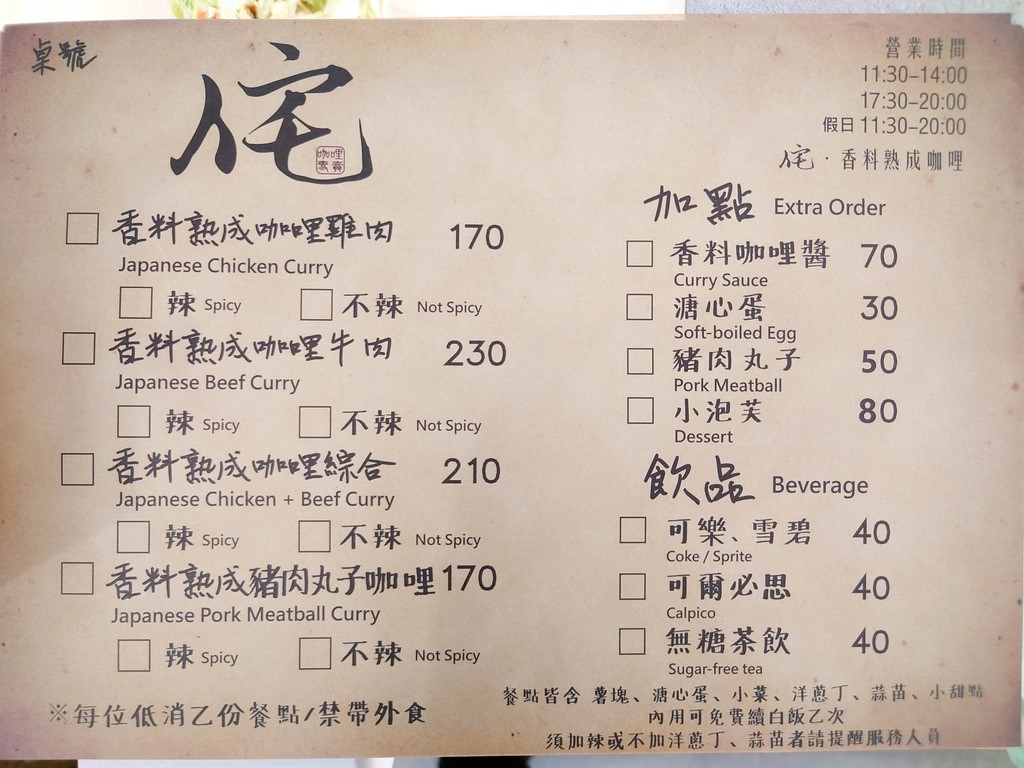 桌號
侘
咖哩
專賣
營業時間
11:30-14:00
17:30-20:00
假日 11:30-20:00
侘·香料熟成咖哩
香料熟成咖哩雞肉 170
Japanese Chicken Curry
辣 Spicy 不辣 Not Spicy
香料熟成咖哩牛肉 230
Japanese Beef Curry
辣 Spicy 不辣 Not Spicy
香料熟成咖哩綜合 210
Japanese Chicken + Beef Curry
辣 Spicy 不辣 Not Spicy
香料熟成豬肉丸子咖哩 170
Japanese Pork Meatball Curry
辣 Spicy 不辣 Not Spicy
※每位低消乙份餐點/禁帶外食
加點 Extra Order
香料咖哩醬 70
Curry Sauce
溏心蛋 30
Soft-boiled Egg
豬肉丸子 50
Pork Meatball
小泡芙 80
Dessert
飲品 Beverage
可樂、雪碧 40
Coke / Sprite
可爾必思 40
Calpico
無糖茶飲 40
Sugar-free tea
餐點皆含 薯塊、溏心蛋、小菜、洋蔥丁、蒜苗、小甜點
內用可免費續白飯乙次
須加辣或不加洋蔥丁、蒜苗者請提醒服務人員